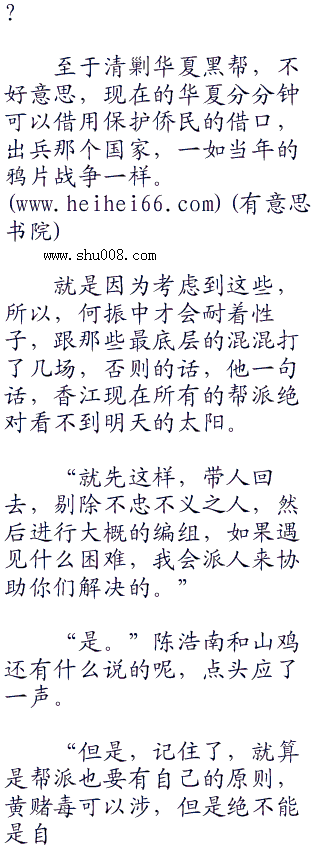 ?
至于清剿华夏黑帮，不
好意思，现在的华夏分分钟
可以借用保护侨民的借口，
出兵那个国家，一如当年的
鸦片战争一样。
(www.heihei66.com)(有意思
书院)
www.shu008.com
就是因为考虑到这些，
所以，何振中才会耐着性
子，跟那些最底层的混混打
了几场，否则的话，他一句
话，香江现在所有的帮派绝
对看不到明天的太阳。
“就先这样，带人回
去，剔除不忠不义之人，然
后进行大概的编组，如果遇
见什么困难，我会派人来协
助你们解决的。”
“是。”陈浩南和山鸡
还有什么说的呢，点头应了
一声。
“但是，记住了，就算
是帮派也要有自己的原则，
黄赌毒可以涉，但是绝不能
是自